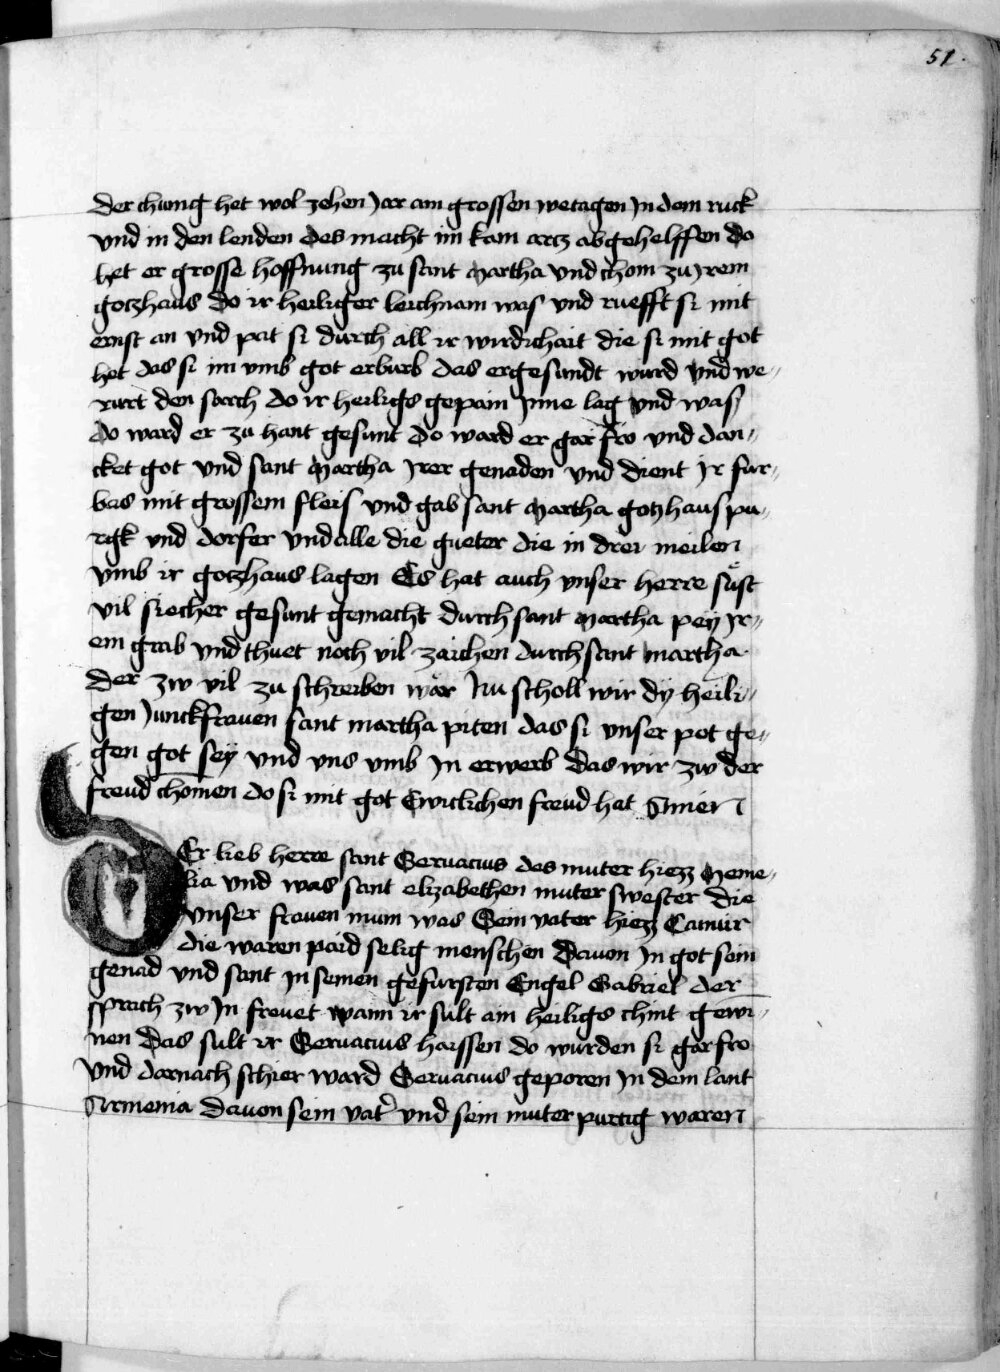 51.
Der chunig het wol zehen Jar ain grossen wetagen Jn dem ruck
vnd in den lenden des macht im kain artz abgehelffen Do
het er grosse hoffnung zu sant Martha vnd chom zu Jrem
gotzhaus do ir heiliger leichnam was vnd ruefft si mit
ernst an vnd pat si durch all ir wirdichait die si mit got
het das si im vmb got erburb das er gesundt wurd vnd we-
rurt den sarch do ir heiligs gepain Jnne lag vnd was
do ward er zu hant gesunt do ward er gar fro vnd dan-
cket got vnd sant Martha Jrer genaden vnd dient Jr fur-
bas mit grossem fleis vnd gab sant Martha gotzhaus pu-
rgk vnd dorfer vnd alle die gueter die in drei meilen
vmb ir gotzhaus lagen Es hat auch vnser herre süst
vil siecher gesunt gemacht durch sant Martha pey Jr-
em grab vnd thuet noch vil zaichen durch sant martha
der zw vil zu schreiben wär Nu scholl wir dÿ heili-
gen Junckfrauen sant martha piten das si vnser pot ge-
gen got seÿ vnd vns vmb Jn erwerb Das wir zw der
freud chōmen do si mit got Ewicklichen freud hat Amen
DEr lieb herre sant Seruacius des muter hiezz Meme-
lia vnd was sant elizabethen muter swester die
vnser frauen mum was Sein vater hiezz Camiir
die waren paid selig menschen Dauon Jn got sein
genad vnd sant Jn seinen gefursten Engel Gabriel der
sprach zw Jn freuet wann ir sult ain heiligs chint gewī-
nen Das sult ir Seruacius haissen do wurden si gar fro
vnd darnach schier ward Seruacius geporen Jn dem lant
Armenia Dauon sein vat' vnd sein muter purtig waren